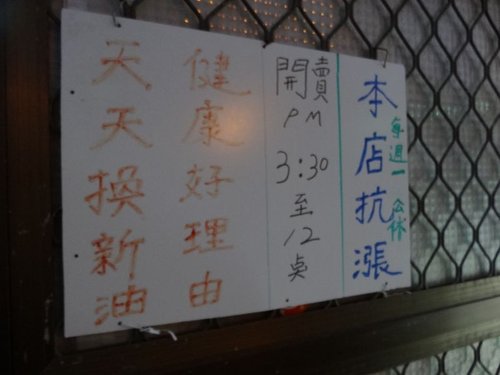 本店抗漲
每週一公休
開賣
PM
3:30
至
12
點
健康好理由
天天換新油